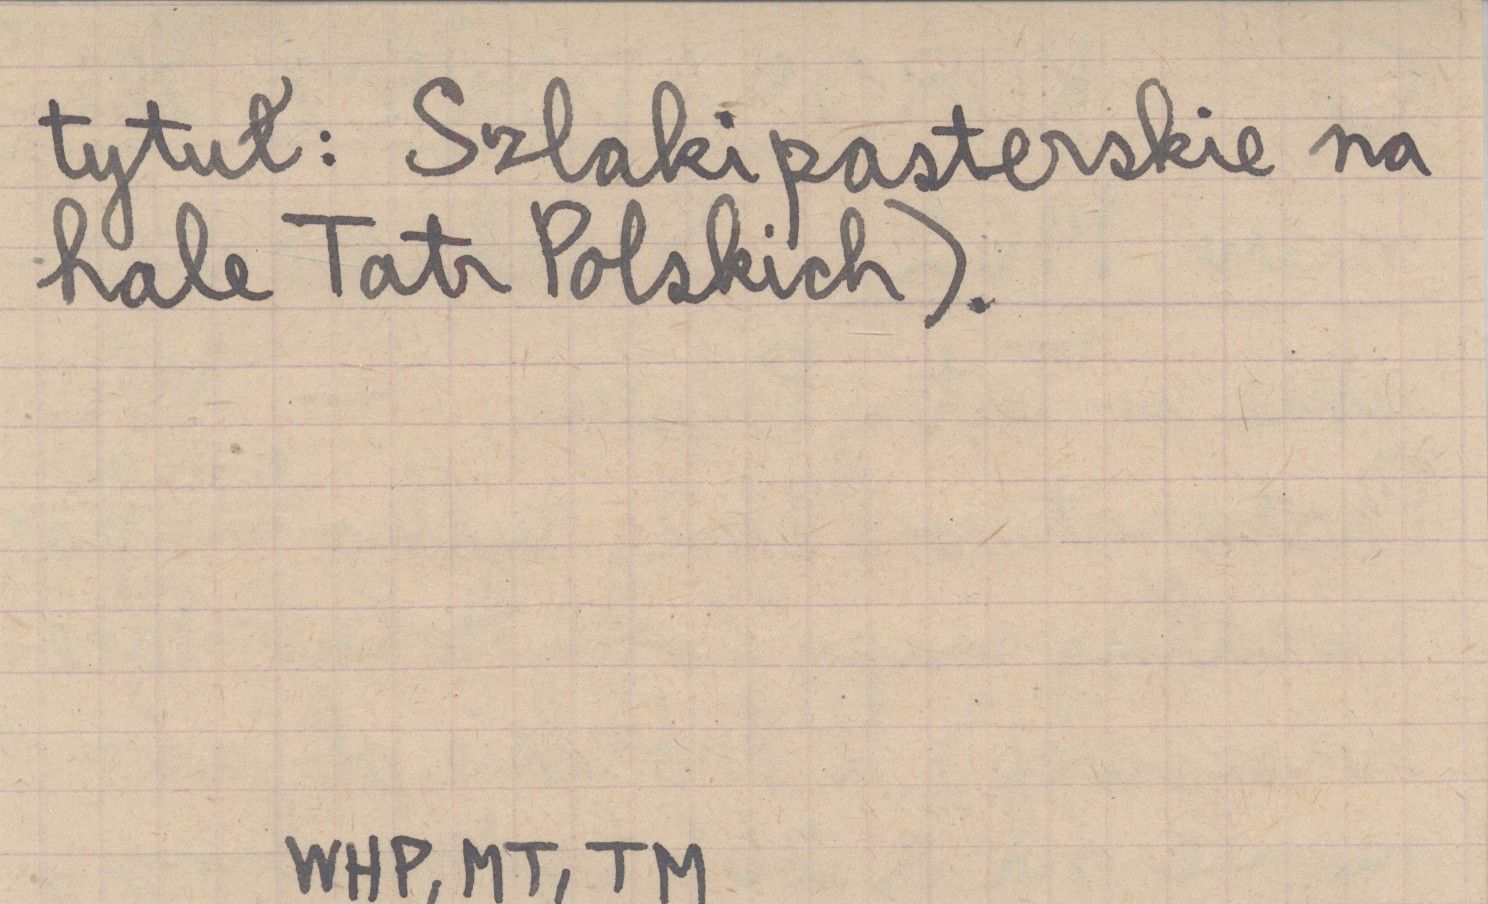 tytuł: Szlaki pasterskie na
hale Tatr Polskich).
WHP, MT, TM